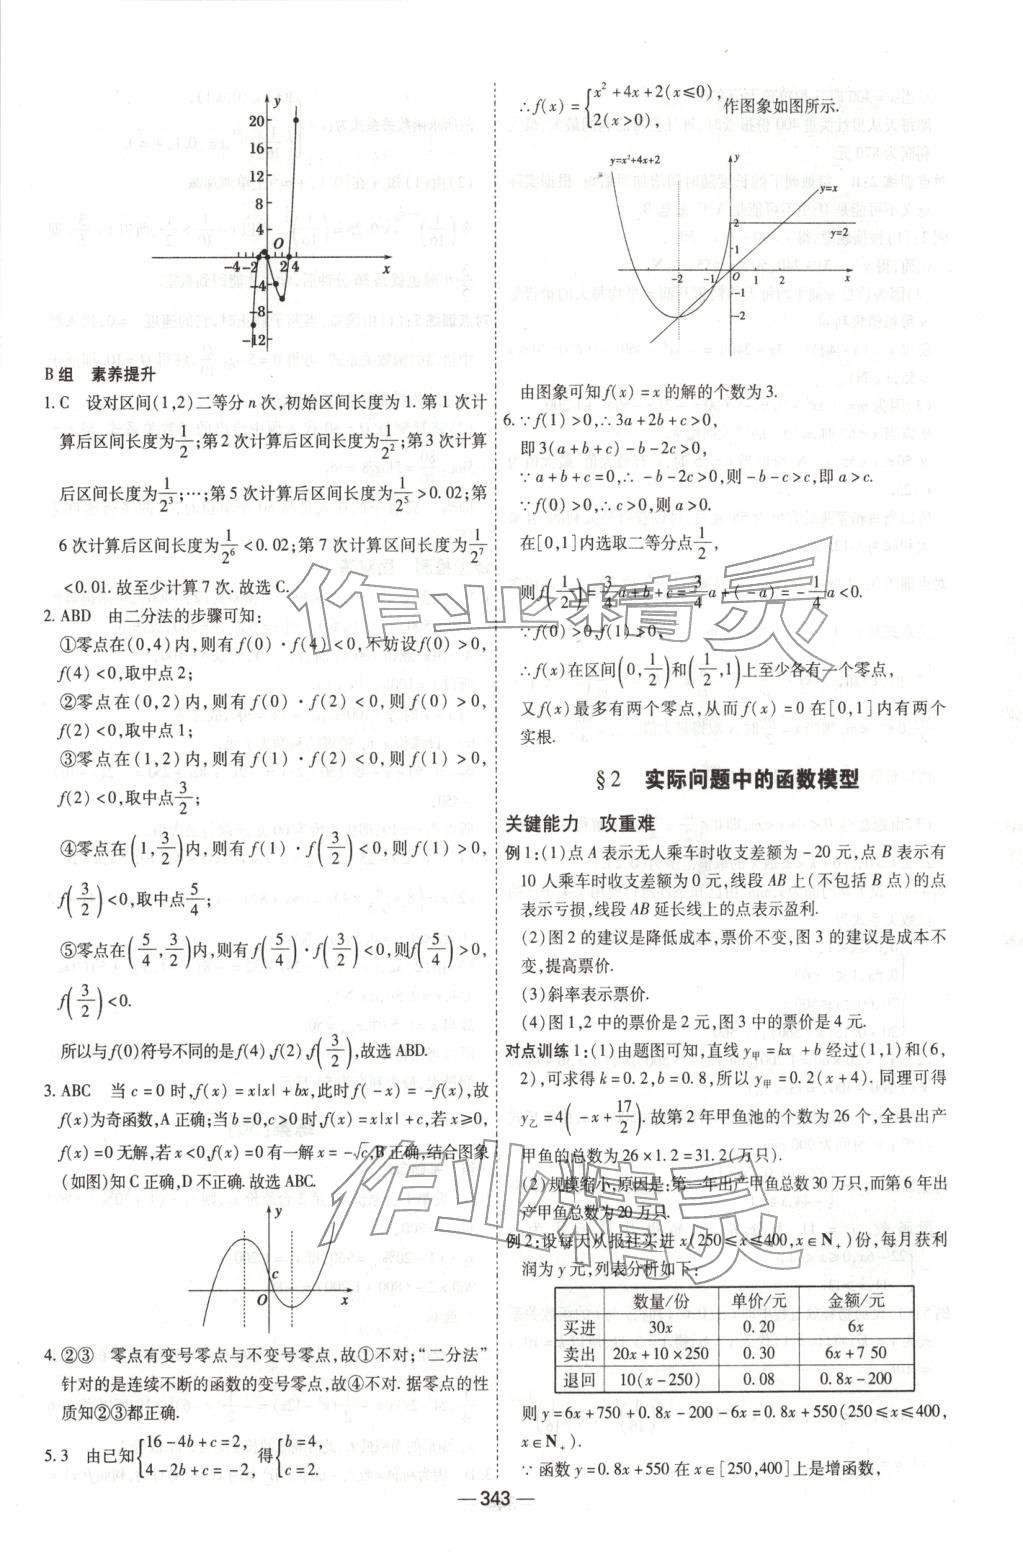 y
20
16
12
8
4
-4 -2 O 2 4 x
-4
-8
-12
B 组 素养提升
1. C 设对区间(1,2)二等分 n 次,初始区间长度为 1. 第 1 次计
算后区间长度为1/2;第2次计算后区间长度为1/2²;第3次计算
后区间长度为1/2³;…;第 5 次计算后区间长度为1/2⁵>0.02;第
6 次计算后区间长度为1/2⁶<0.02;第 7 次计算后区间长度为1/2⁷
<0.01. 故至少计算 7 次. 故选 C.
2. ABD 由二分法的步骤可知:
①零点在(0,4)内,则有 f(0)·f(4)<0,不妨设f(0)>0,
f(4)<0,取中点 2;
②零点在(0,2)内,则有 f(0)·f(2)<0,则f(0)>0,
f(2)<0,取中点 1;
③零点在(1,2)内,则有 f(1)·f(2)<0,则f(1)>0,
f(2)<0,取中点3/2;
④零点在(1,3/2)内,则有 f(1)·f(3/2)<0,则f(1)>0,
f(3/2)<0,取中点5/4;
⑤零点在(5/4,3/2)内,则有 f(5/4)·f(3/2)<0,则f(5/4)>0,
f(3/2)<0.
所以与f(0)符号不同的是f(4),f(2),f(3/2),故选 ABD.
3. ABC 当 c=0 时,f(x)=x|x|+bx,此时f(-x)=-f(x),故
f(x)为奇函数,A 正确;当 b=0,c>0 时,f(x)=x|x|+c,若 x≥0,
f(x)=0 无解,若 x<0,f(x)=0 有一解 x=-√c,B 正确,结合图象
(如图)知 C 正确,D 不正确. 故选 ABC.
y
c
O x
4. ②③ 零点有变号零点与不变号零点,故①不对;“二分法”
针对的是连续不断的函数的变号零点,故④不对. 据零点的性
质知②③都正确.
5. 3 由已知{16-4b+c=2, 4-2b+c=-2, 得{b=4, c=2.
∴f(x)={x²+4x+2(x≤0), 2(x>0), 作图象如图所示.
y=x²+4x+2 y
y=x
2 y=2
1
-2 -1 O 1 2 x
-1
-2
由图象可知 f(x)=x 的解的个数为 3.
6. ∵f(1)>0,∴3a+2b+c>0,
即 3(a+b+c)-b-2c>0,
∵a+b+c=0,∴-b-2c>0,则-b-c>c,即 a>c.
∵f(0)>0,∴c>0,则 a>0.
在[0,1]内选取二等分点1/2,
则f(1/2)=3/4a+b+c=3/4a+(-a)=-1/4a<0.
∵f(0)>0,f(1)>0,
∴f(x)在区间(0,1/2)和(1/2,1)上至少各有一个零点,
又 f(x)最多有两个零点,从而 f(x)=0 在[0,1]内有两个
实根.
§2 实际问题中的函数模型
关键能力 攻重难
例 1:(1)点 A 表示无人乘车时收支差额为-20 元,点 B 表示有
10 人乘车时收支差额为 0 元,线段 AB 上(不包括 B 点)的点
表示亏损,线段 AB 延长线上的点表示盈利.
(2)图 2 的建议是降低成本,票价不变,图 3 的建议是成本不
变,提高票价.
(3)斜率表示票价.
(4)图 1,2 中的票价是 2 元,图 3 中的票价是 4 元.
对点训练 1:(1)由题图可知,直线 y甲=kx+b 经过(1,1)和(6,
2),可求得 k=0.2,b=0.8,所以 y甲=0.2(x+4). 同理可得
y乙=4(-x+17/2). 故第 2 年甲鱼池的个数为 26 个,全县出产
甲鱼的总数为 26×1.2=31.2(万只).
(2)规模缩小,原因是:第一年出产甲鱼总数 30 万只,而第 6 年出
产甲鱼总数为 20 万只.
例 2:设每天从报社买进 x(250≤x≤400,x∈N₊)份,每月获利
润为 y 元,列表分析如下:
数量/份 单价/元 金额/元
买进 30x 0.20 6x
卖出 20x+10×250 0.30 6x+750
退回 10(x-250) 0.08 0.8x-200
则 y=6x+750+0.8x-200-6x=0.8x+550(250≤x≤400,
x∈N₊).
∵函数 y=0.8x+550 在 x∈[250,400]上是增函数,
— 343 —
作业精灵
作业精灵